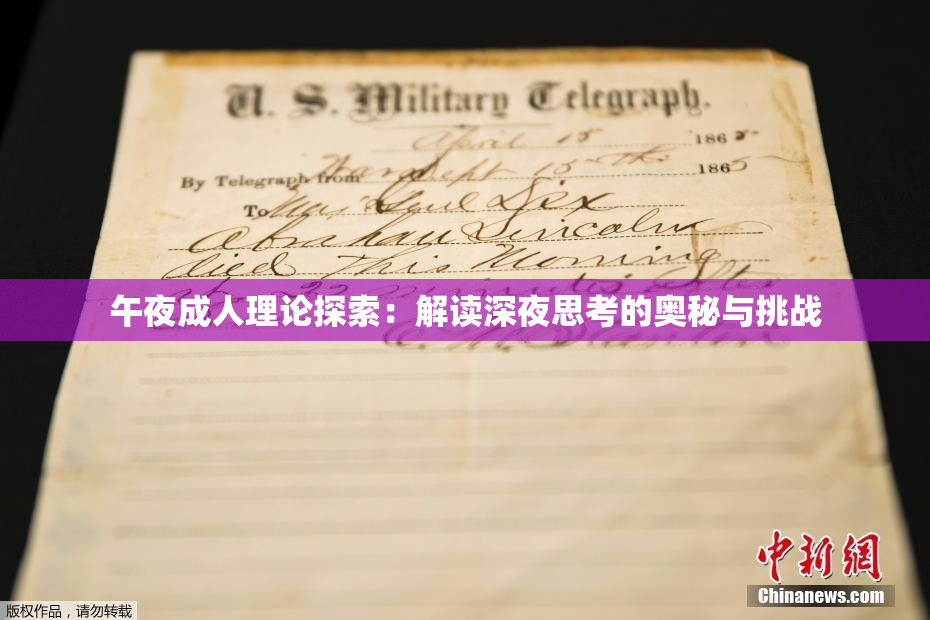 U. S. Military Telegraph.
April 15 1865
By Telegraph from War Dept 15th 1865
To Maj Genl Dix
Abraham Lincoln
died This Morning
at 22 minutes after
午夜成人理论探索：解读深夜思考的奥秘与挑战
中新网
Chinanews.com
版权作品，请勿转载